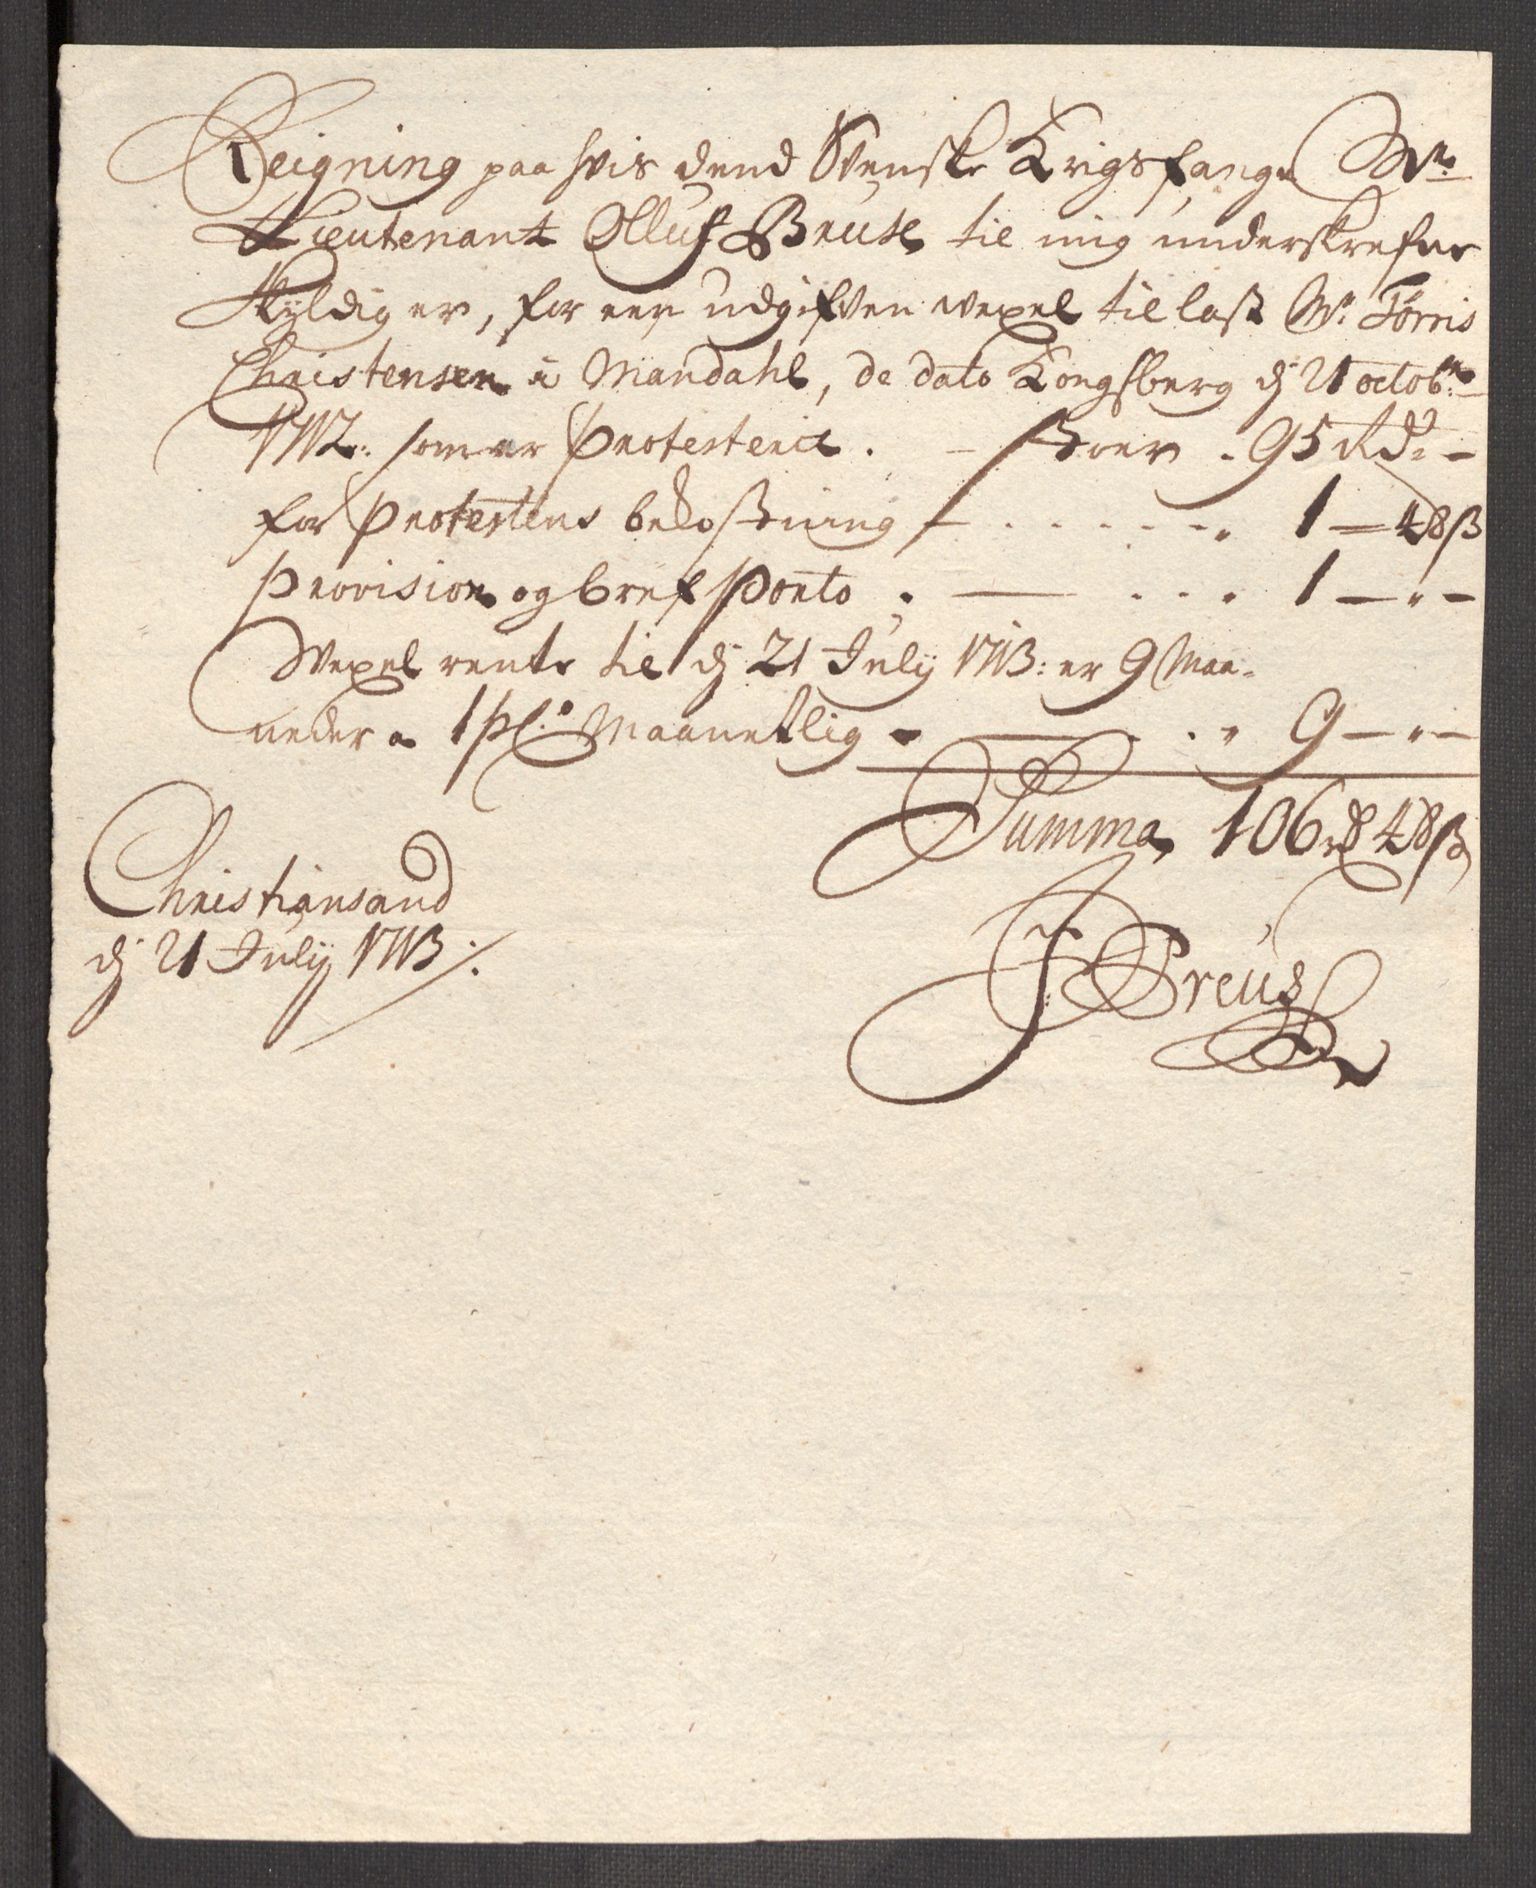 Reigning paa hvis dend Svenske Krigsfange Mr.
Lieutenant Olluf Bruse til mig underskrefne
skyldig er, for een udgifven wexel til last Mr. Tørris
Christensen i Mandahl, de dato Kongsberg dj 21 octobr.
1712: som er protesterit. - Stoer . 95 Rd: -
for protestens bekostning - . . . . 1 - 48 ß
provision og bref porto . — . . . 1 - " -
Wexel rente til dj 21 July 1713: er 9 Maa-
neder a 1 pC.o Maanetlig - — . . " 9 - " -
Summa 106 rd 48 ß
Christiansand
dj 21 July 1713 /:
J: Preus